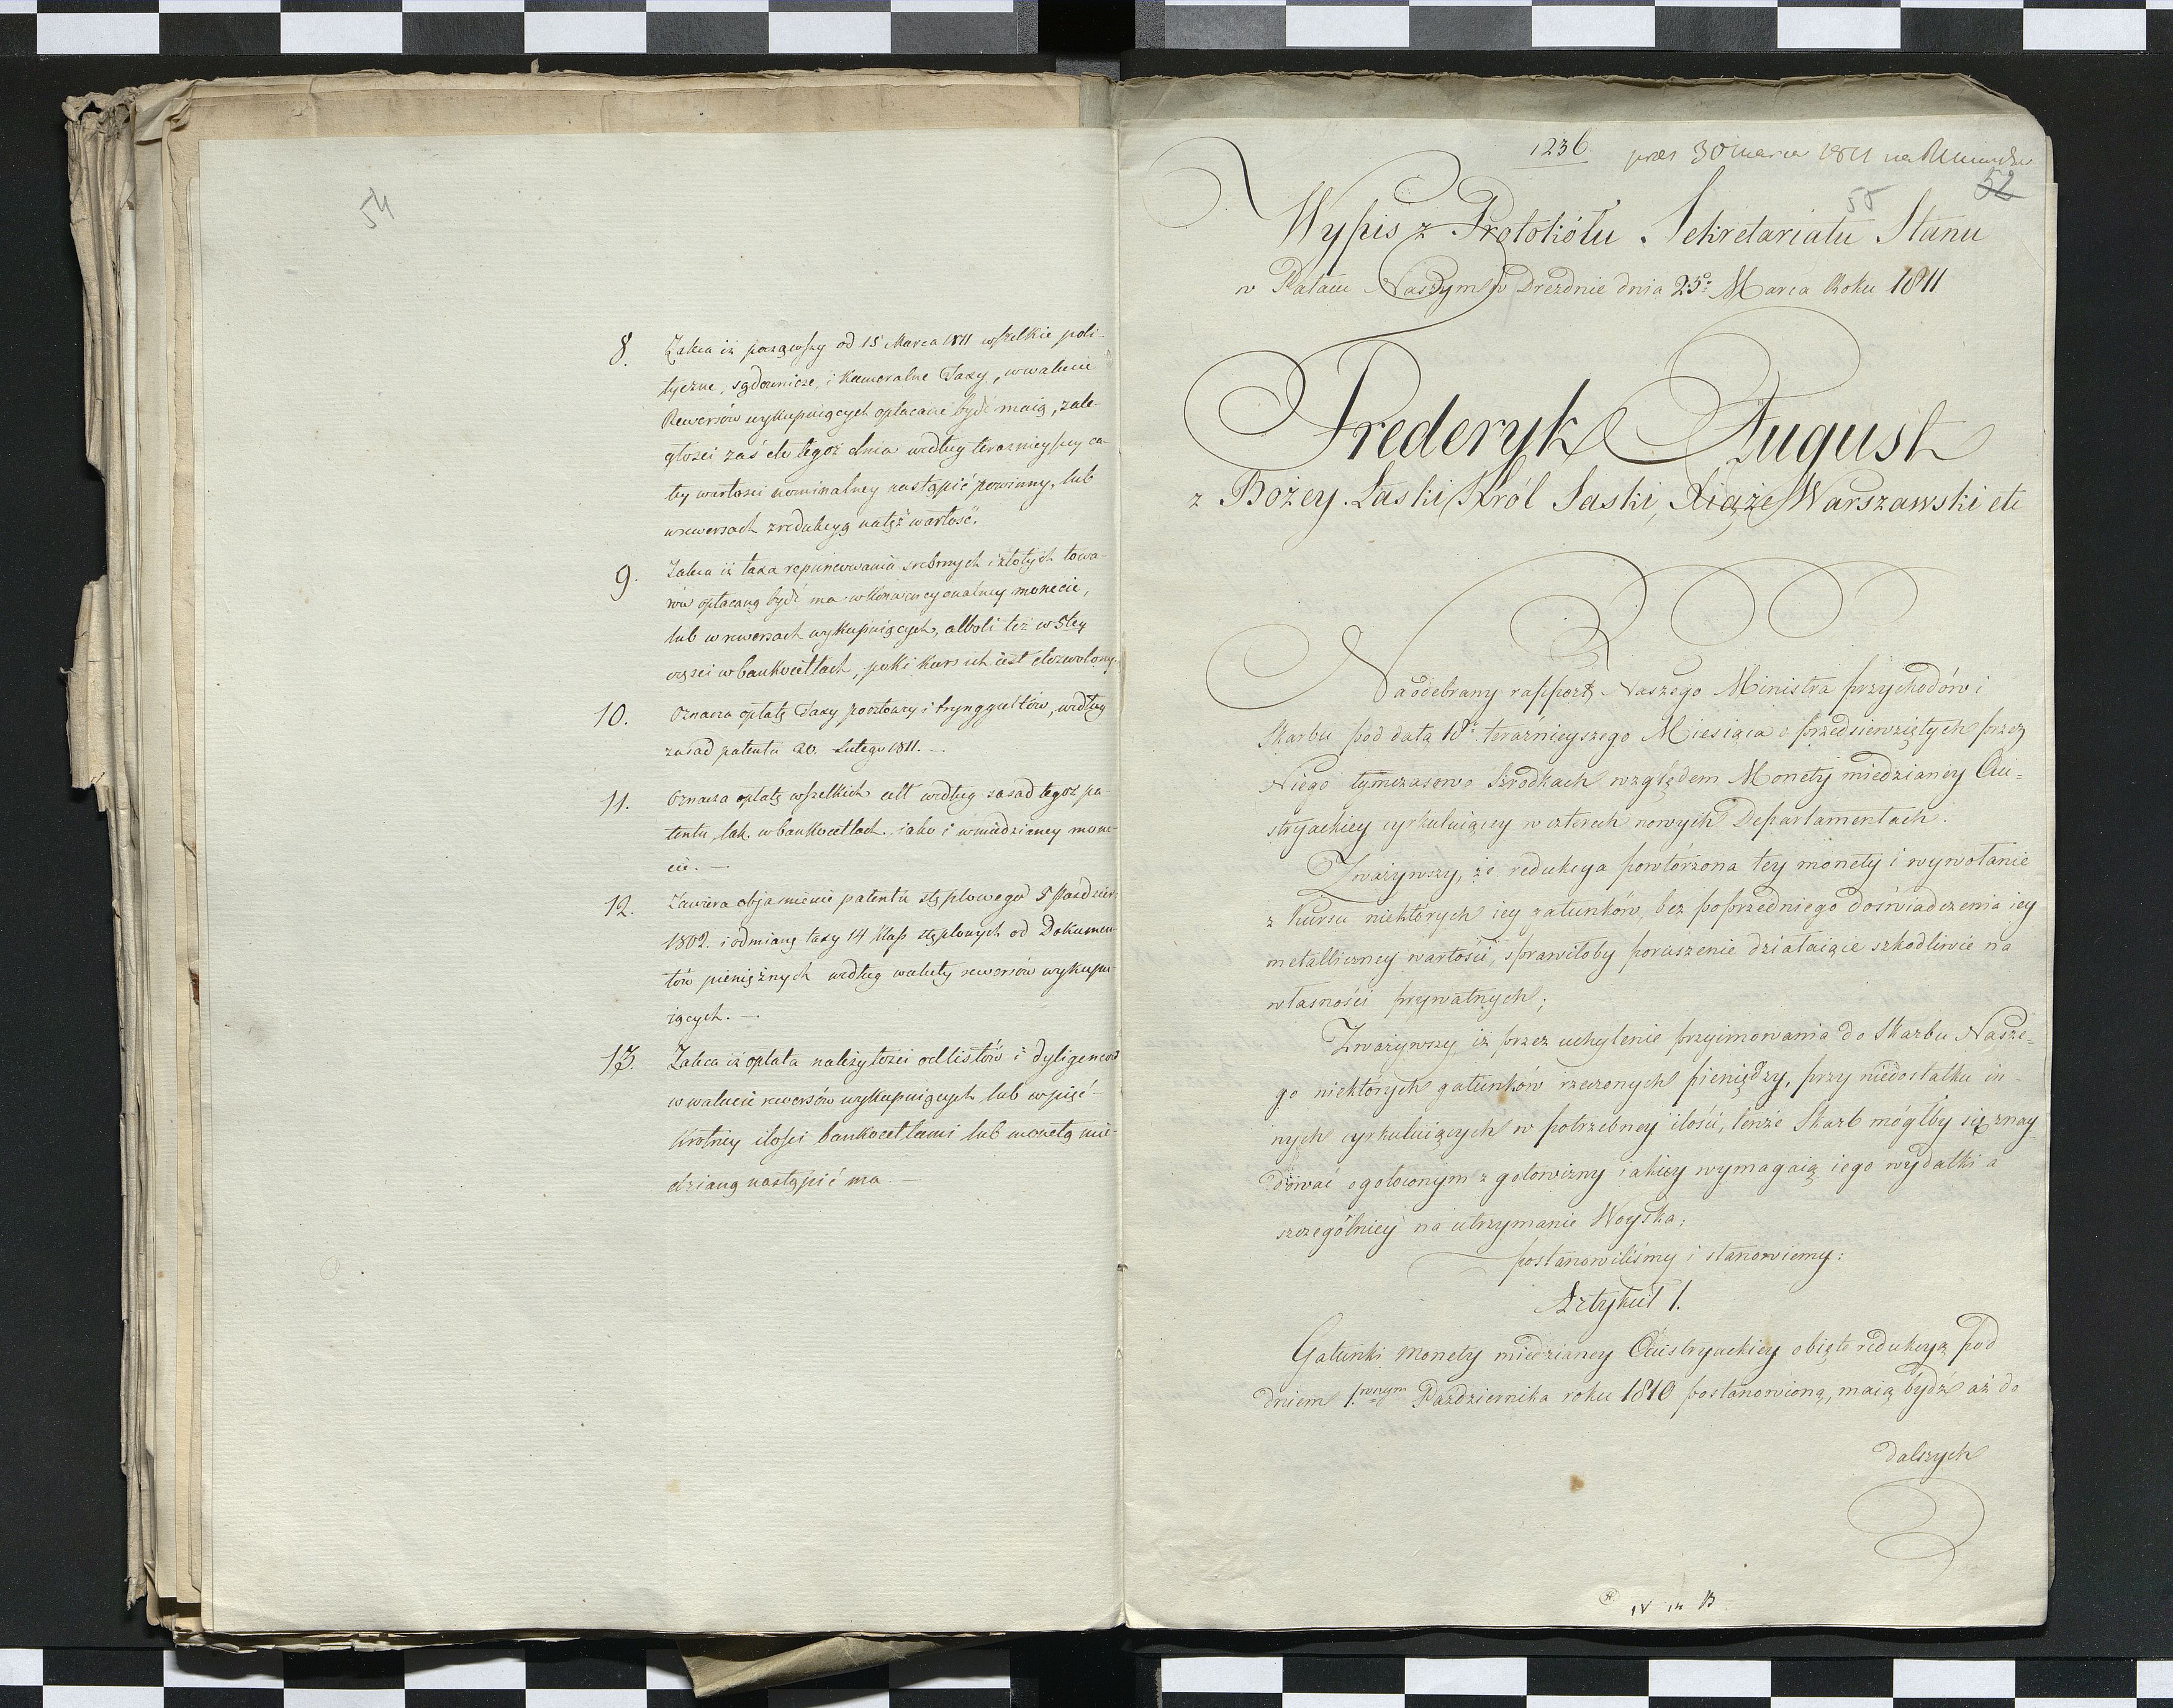 54
8. Zaleca iż począwszy od 15 Marca 1811 wszelkie poli-
tyczne, sądownicze, i kameralne Taxy, w walucie
Rewersów wykupuiących opłacane bydź maią, zale-
głości zaś do tegoż dnia według teraznieyszey ca-
łey wartości nominalney nastąpić powinny, lub
w rewersach z redukcyą na tęż wartość.
9. Zaleca iż taxa repuncowania srebrnych i złotych towa-
rów opłacaną bydź ma w konwencyonalney monecie,
lub w rewersach wykupuiących, alboli też w 5tey
części w bankocetlach, poki kurs ich iest dozwolony.
10. Oznacza opłatę Taxy pocztowey i trynggieltów, według
zasad patentu 20. Lutego 1811. —
11. Oznacza opłatę wszelkich cełł według zasad tegoż pa-
tentu, tak w bankocetlach, iako i w miedzianey mone-
cie. —
12. Zawiera objasnienie patentu stęplowego d 5 Pazdzier:
1802. i odmianę taxy 14 klass stęplowych od Dokumen-
tów pieniężnych według waluty rewersów wykupu-
iących. —
13. Zaleca iż opłata należytości od listów i dyligensów
w walucie rewersów wykupuiących lub w pięć-
krotney ilości bankocetlami lub monetą mie-
dzianą nastąpić ma. —
1236. pres 30 marca 1811 na
55 52
Wypis z Protokółu Sekretariatu Stanu
w Pałacu Naszym w Dreźnie dnia 25º Marca Roku 1811
Frederyk August
z Bożey Łaski Król Saski, Xiąże Warszawski etc
Na odebrany rapport Naszego Ministra przychodów i
Skarbu pod datą 18º teraźnieyszego Miesiąca o przedsiewziętych przez
Niego tymczasowo Srodkach względem Monety miedzianey Au-
stryackiey cyrkuluiącey w czterech nowych Departamentach.
Zważywszy, że redukcya powtórzona tey monety i wywołanie
z kursu niektórych iey gatunków, bez poprzedniego doświadczenia iey
metalliczney wartości, sprawiłoby poruszenie działaiące szkodliwie na
własności prywatnych;
Zważywszy iż przez uchylenie przyimowania do Skarbu Nasze-
go niektórych gatunków rzeczonych pieniędzy, przy niedostatku in-
nych cyrkuluiących w potrzebney ilości, tenże Skarb mógłby się znay-
dować ogołoconym z gotowizny iakiey wymagaią iego wydatki a
szczególniey na utrzymanie Woyska;
postanowiliśmy i stanowiemy:
Artykuł 1.
Gatunki monety miedzianey Austryackiey obięte redukcyą pod
dniem 1.wszym Października roku 1810 postanowioną, maią bydź aż do
dalszych
IV